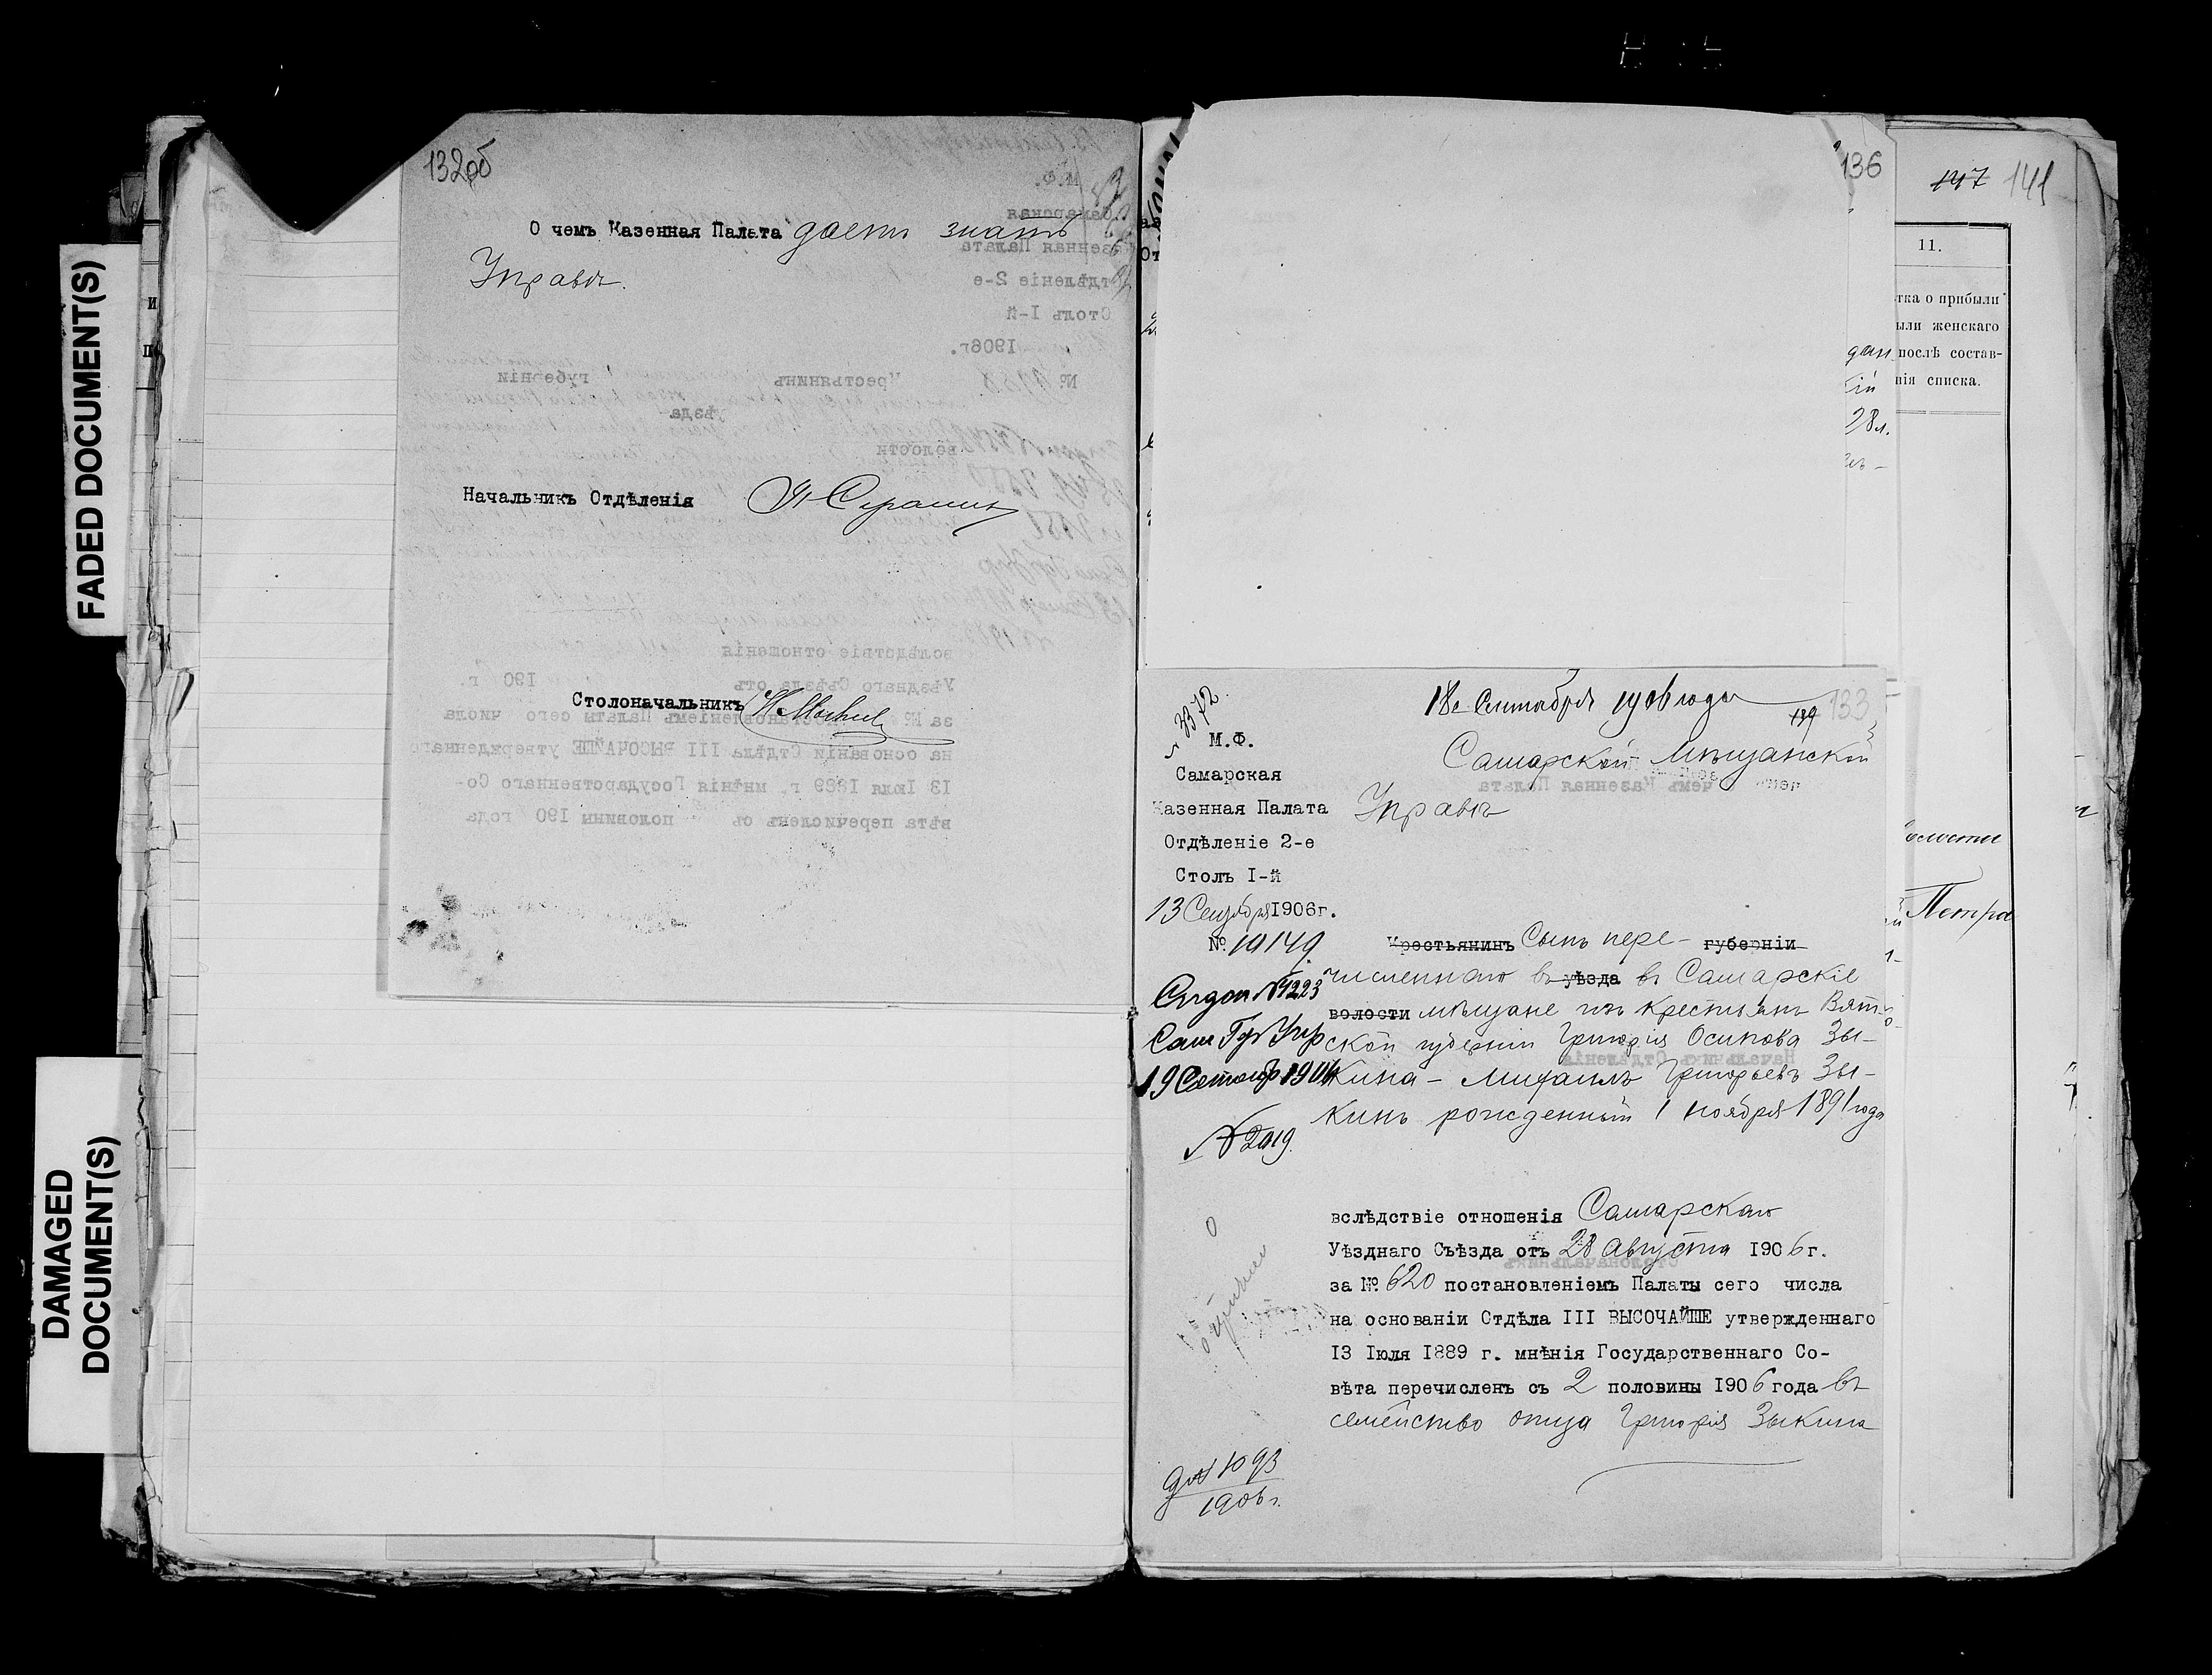 FADED DOCUMENT(S)
DAMAGED
DOCUMENT(S)
132об
О чемъ Казенная Палата даетъ знать
Управѣ.
Начальникъ Отдѣленія
Столоначальникъ
136
147 141
11.
тка о прибыли
ыли женскаго
послѣ состав-
нія списка.
28 л.
Петра
3372
18 Сентября 1906 года
133
М.Ф.
Самарской Мѣщанской
Самарская
Казенная Палата
Управѣ
Отдѣленіе 2-е
Столъ I-й
13 Сентября 1906г.
№ 19149
Крестьянинъ Сынъ пере- губерніи
численнаго въ уѣзда въ Самарскіе
волости мѣщане изъ крестьянъ Вят-
ской губерніи Григорія Осипова Зы-
кина - Михаилъ Григорьевъ Зы-
кинъ рожденный 1 ноября 1891 года
№ 1223
Сам Губ Упр
№ 2019.
вслѣдствіе отношенія Самарскаго
Уѣзднаго Съѣзда отъ 28 Августа 1906 г.
за № 620 постановленіемъ Палаты сего числа
на основаніи Отдѣла III ВЫСОЧАЙШЕ утвержденнаго
13 Іюля 1889 г. мнѣнія Государственнаго Со-
вѣта перечисленъ съ 2 половины 1906 года въ
семейство отца Григорія Зыкина
д № 1093
1906 г.